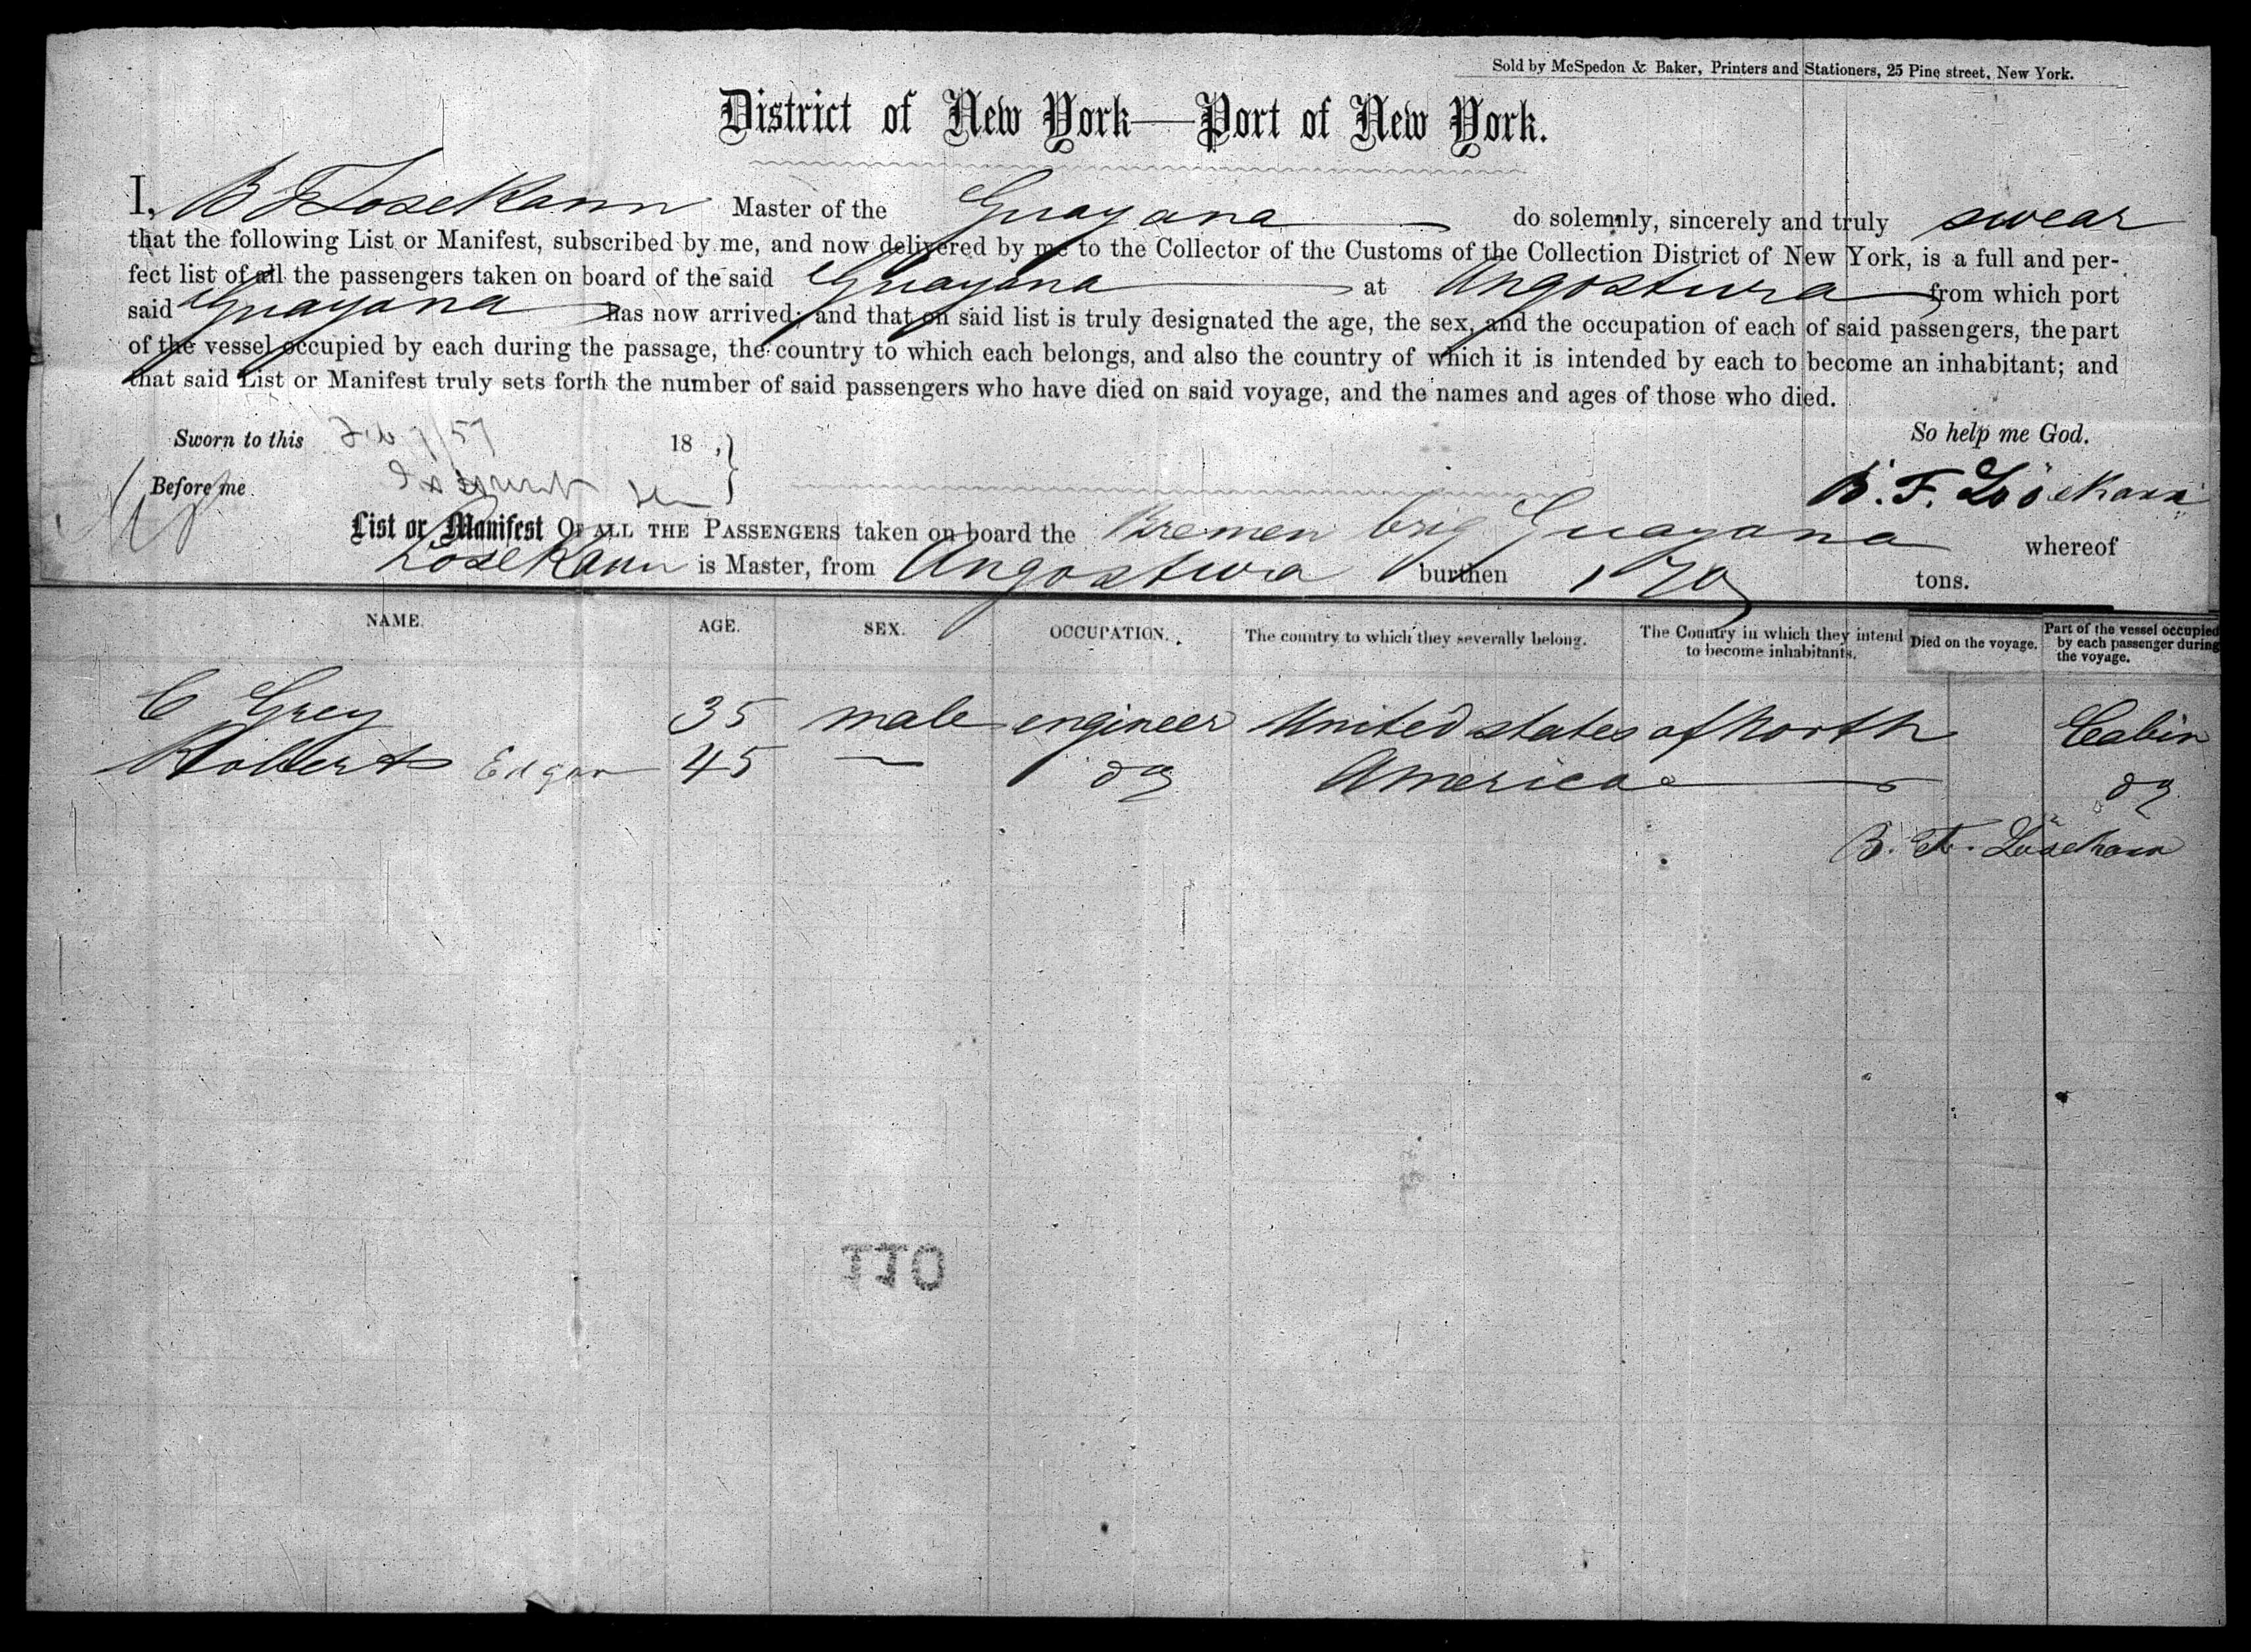 Sold by McSpedon & Baker, Printers and Stationers, 25 Pine street, New York.
District of New York—Port of New York.
I, B F Losekann Master of the Guayana do solemnly, sincerely and truly swear
that the following List or Manifest, subscribed by me, and now delivered by me to the Collector of the Customs of the Collection District of New York, is a full and per-
fect list of all the passengers taken on board of the said Guayana at Angostura from which port
said Guayana has now arrived; and that on said list is truly designated the age, the sex, and the occupation of each of said passengers, the part
of the vessel occupied by each during the passage, the country to which each belongs, and also the country of which it is intended by each to become an inhabitant; and
that said List or Manifest truly sets forth the number of said passengers who have died on said voyage, and the names and ages of those who died.
Sworn to this Feb 7/57 18 , So help me God.
Before me B. F. Lösekann
List or Manifest OF ALL THE PASSENGERS taken on board the Bremen brig Guayana whereof
Losekann is Master, from Angostura burthen 170 tons.
NAME. AGE. SEX. OCCUPATION. The country to which they severally belong. The Country in which they intend to become inhabitants. Died on the voyage. Part of the vessel occupied by each passenger during the voyage.
C Grey 35 male engineer United states of North Cabin
Robberts Edgar 45 — do America do
B. F. Lösekann
110